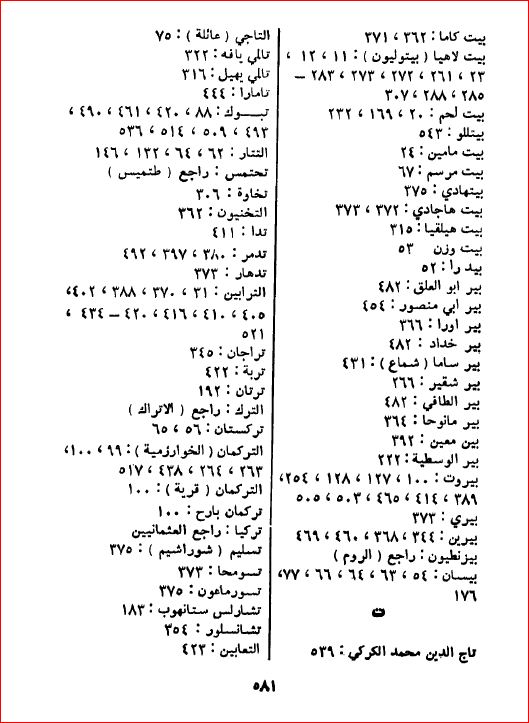 بيت كاما : ٣٦٢ ، ٣٧١
بيت لاهيا ( بيتوليون ) : ١١ ، ١٢ ،
٢٣ ، ٢٦١ ، ٢٧٢ ، ٢٧٣ ، ٢٨٣ –
٢٨٥ ، ٢٨٨ ، ٣٠٧
بيت لحم : ٢٠ ، ١٦٩ ، ٢٣٢
بيتللو : ٥٤٣
بيت مامين : ٢٤
بيت مرسم : ٦٧
بيتهادي : ٣٧٥
بيت هاجادي : ٣٧٢ ، ٣٧٣
بيت هيلقيا : ٣١٥
بيت وزن ٥٣
بيد را : ٥٢
بير ابو العلق : ٤٨٢
بير ابي منصور : ٤٥٤
بير اورا : ٣٦٦
بير خداد : ٤٨٢
بير ساما ( شماع ) : ٤٣١
بير شقير : ٢٦٦
بير الطافي : ٤٨٢
بير مانوحا : ٣٦٤
بين معين : ٣٩٢
بير الوسطية : ٢٢٢
بيروت : ١٠٠ ، ١٢٧ ، ١٢٨ ، ٢٥٤،
٣٨٩ ، ٤١٤ ، ٤٦٥ ، ٥٠٣ ، ٥٠٥
بيري : ٣٧٣
بيرين : ٣٤٤ ، ٣٦٨ ، ٤٦٠ ، ٤٦٩
بيزنطيون : راجع ( الروم )
بيسان : ٥٤ ، ٦٣ ، ٦٤ ، ٦٦ ، ٧٧،
١٧٦
ت
تاج الدين محمد الكركي : ٥٣٩
التاجي ( عائلة ) : ٧٥
تالي يافه : ٣٢٢
تالي يهيل : ٣١٦
تامارا : ٤٤٤
تبوك : ٨٨ ، ٤٢٠ ، ٤٦١ ، ٤٩٠ ،
٤٩٣ ، ٥٠٩ ، ٥١٤ ، ٥٣٦
التتار : ٦٢ ، ٦٤ ، ١٣٢ ، ١٤٦
تحتمس : راجع ( طتميس )
تخاوة : ٣٠٦
التخنيون : ٣٦٢
تدا : ٤١١
تدمر : ٣٨٠ ، ٣٩٧ ، ٤٩٢
تدهار : ٣٧٣
الترابين : ٣١ ، ٣٧٠ ، ٣٨٨ ، ٤٠٢،
٤٠٥ ، ٤١٠ ، ٤١٦ ، ٤٢٠ – ٤٣٤ ،
٥٢١
تراجان : ٣٤٥
تربة : ٤٢٢
ترتان : ١٩٢
الترك : راجع ( الاتراك )
تركستان : ٥٦ ، ٦٥
التركمان ( الخوارزمية ) : ٩٩ ، ١٠٠،
٢٦٣ ، ٢٦٤ ، ٤٣٨ ، ٥١٧
التركمان ( قرية ) : ١٠٠
تركمان بارح : ١٠٠
تركيا : راجع العثمانيين
تسليم ( شوراشيم ) : ٣٧٥
تسومحا : ٣٧٣
تسورماهون : ٣٧٥
تشارلس ستانهوب : ١٨٣
تشانسلور : ٣٥٤
التعابين : ٤٢٣
٥٨١